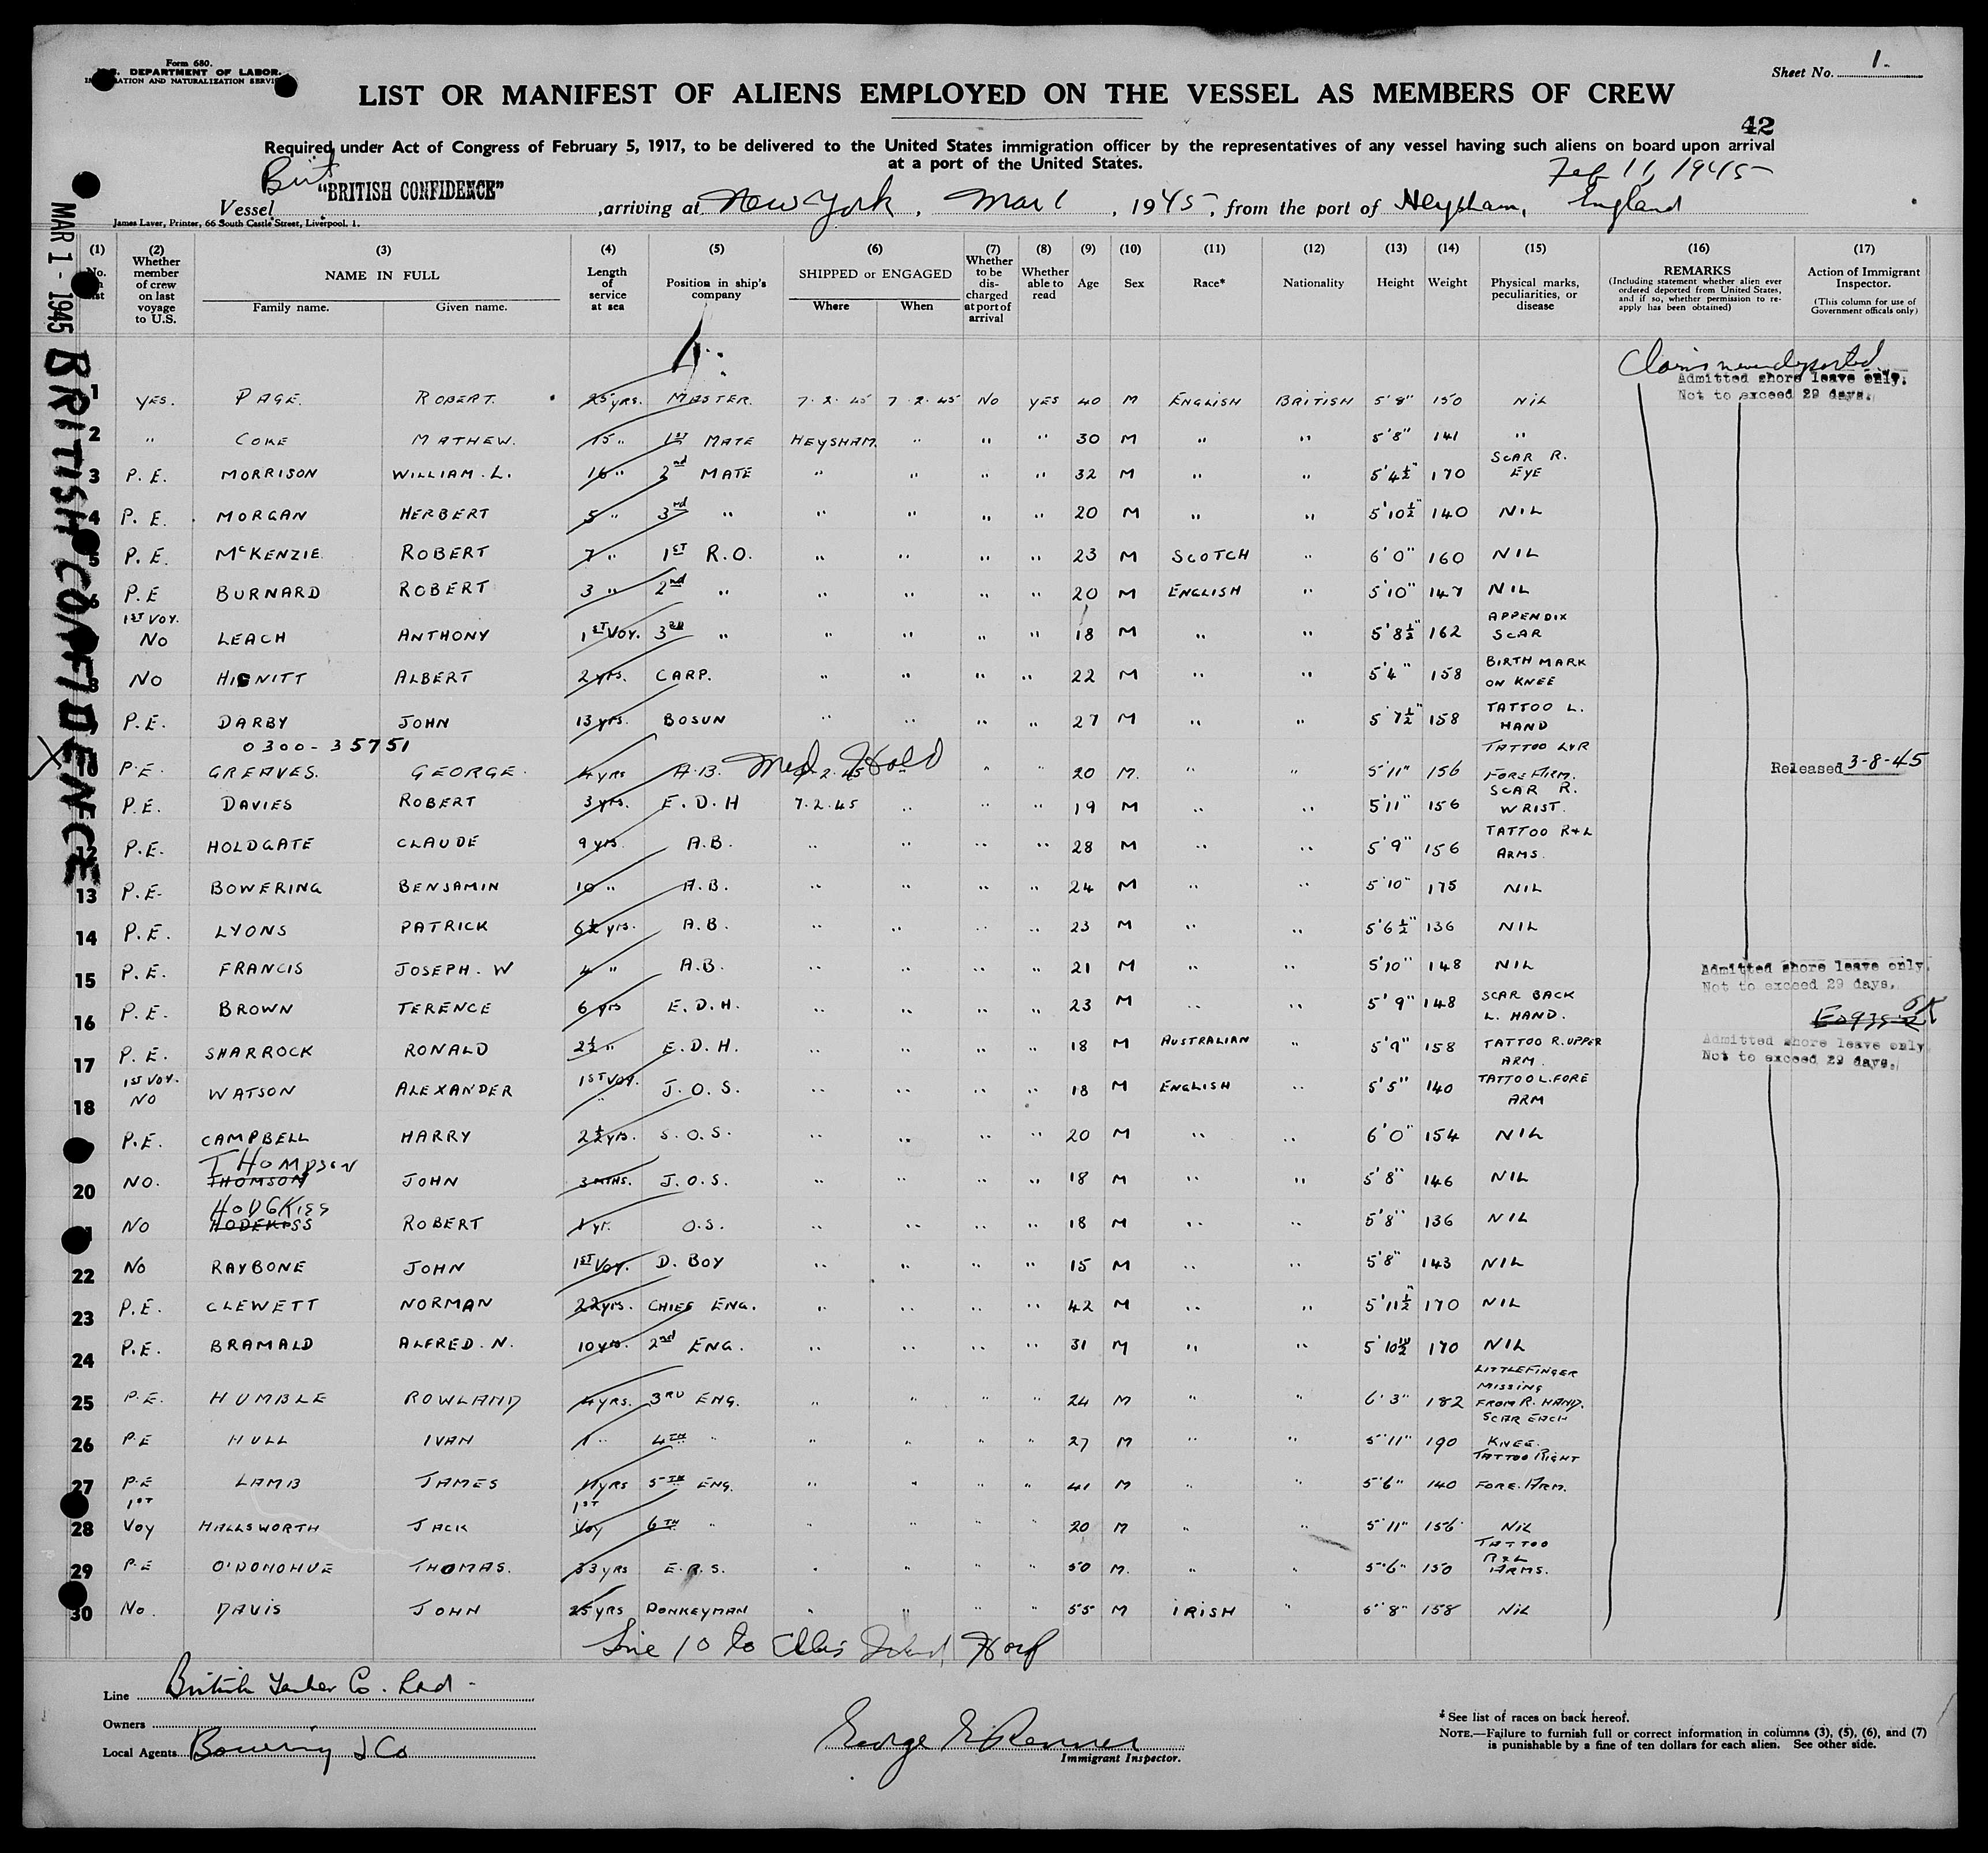 Form 680.
U.S. DEPARTMENT OF LABOR.
IMMIGRATION AND NATURALIZATION SERVICE
Sheet No. 1.
LIST OR MANIFEST OF ALIENS EMPLOYED ON THE VESSEL AS MEMBERS OF CREW
42
Required under Act of Congress of February 5, 1917, to be delivered to the United States immigration officer by the representatives of any vessel having such aliens on board upon arrival
at a port of the United States.
Feb 11, 1945
Brit "BRITISH CONFIDENCE"
Vessel , arriving at New York, Mar 1, 1945, from the port of Heysham, England
James Laver, Printer, 66 South Castle Street, Liverpool. 1.
MAR 1 - 1945 BRITISH CONFIDENCE
(1) (2) (3) (4) (5) (6) (7) (8) (9) (10) (11) (12) (13) (14) (15) (16) (17)
No. Whether member of crew on last voyage to U.S. NAME IN FULL Family name. Given name. Length of service at sea Position in ship's company SHIPPED or ENGAGED Where When Whether to be discharged at port of arrival Whether able to read Age Sex Race* Nationality Height Weight Physical marks, peculiarities, or disease REMARKS (Including statement whether alien ever ordered deported from United States, and if so, whether permission to re-apply has been obtained) Action of Immigrant Inspector. (This column for use of Government officals only)
Claims never deported
Admitted shore leave only.
Not to exceed 29 days.
1 YES. PAGE. ROBERT. 25 YRS. MASTER. 7.2.45 7.2.45 NO YES 40 M ENGLISH BRITISH 5'8" 150 NIL
2 " COKE MATHEW. 15 " 1ST MATE HEYSHAM. " " " 30 M " " 5'8" 141 "
3 P.E. MORRISON WILLIAM. L. 16 " 2nd MATE " " " " 32 M " " 5'4½" 170 SCAR R. EYE
4 P.E. MORGAN HERBERT 5 " 3rd " " " " " 20 M " " 5'10½" 140 NIL
5 P.E. McKENZIE ROBERT 7 " 1ST R.O. " " " " 23 M SCOTCH " 6'0" 160 NIL
6 P.E BURNARD ROBERT 3 " 2nd " " " " " 20 M ENGLISH " 5'10" 147 NIL
1ST VOY. NO LEACH ANTHONY 1ST VOY. 3RD " " " " " 18 M " " 5'8½" 162 APPENDIX SCAR
8 NO HIGNITT ALBERT 2 yrs. CARP. " " " " 22 M " " 5'4" 158 BIRTH MARK ON KNEE
P.E. DARBY JOHN 13 yrs. BOSUN " " " " 27 M " " 5'7½" 158 TATTOO L. HAND
0300-35751
X 10 P.E. GREAVES. GEORGE. 4 YRS A.B. Med. Hold 7.2.45 " " 20 M. " " 5'11" 156 TATTOO L&R FORE ARM. Released 3-8-45
P.E. DAVIES ROBERT 3 yrs. E.D.H 7.2.45 " " " 19 M " " 5'11" 156 SCAR R. WRIST.
12 P.E. HOLDGATE CLAUDE 9 yrs. A.B. " " " " 28 M " " 5'9" 156 TATTOO R+L ARMS.
13 P.E. BOWERING BENJAMIN 10 " A.B. " " " " 24 M " " 5'10" 175 NIL
14 P.E. LYONS PATRICK 6½ yrs. A.B. " " " " 23 M " " 5'6½" 136 NIL
15 P.E. FRANCIS JOSEPH. W 4 " A.B. " " " " 21 M " " 5'10" 148 NIL Admitted shore leave only. Not to exceed 29 days.
16 P.E. BROWN TERENCE 6 yrs E.D.H. " " " " 23 M " " 5'9" 148 SCAR BACK L. HAND.
OK
17 P.E. SHARROCK RONALD 2½ " E.D.H. " " " " 18 M AUSTRALIAN " 5'9" 158 TATTOO R. UPPER ARM. Admitted shore leave only Not to exceed 29 days.
18 1ST VOY. NO WATSON ALEXANDER 1ST VOY. J.O.S. " " " " 18 M ENGLISH " 5'5" 140 TATTOO L. FORE ARM
P.E. CAMPBELL HARRY 2½ yrs. S.O.S. " " " " 20 M " " 6'0" 154 NIL
THOMPSON
20 NO. THOMSON JOHN 3 MTHS. J.O.S. " " " " 18 M " " 5'8" 146 NIL
HODGKISS
NO ROBERT 1 yr. O.S. " " " " 18 M " " 5'8" 136 NIL
22 NO RAYBONE JOHN 1ST VOY. D. BOY " " " " 15 M " " 5'8" 143 NIL
23 P.E. CLEWETT NORMAN 22 yrs. CHIEF ENG. " " " " 42 M " " 5'11½" 170 NIL
24 P.E. BRAMALD ALFRED. N. 10 yrs. 2nd ENG. " " " " 31 M " " 5'10½" 170 NIL
25 P.E. HUMBLE ROWLAND 4 YRS. 3RD ENG. " " " " 24 M " " 6'3" 182 LITTLE FINGER MISSING FROM R. HAND.
26 P.E HULL IVAN 1 " 4TH " " " " " 27 M " " 5'11" 190 SCAR EACH KNEE.
27 P.E LAMB JAMES 11 YRS 5TH ENG. " " " " 41 M " " 5'6" 140 TATTOO RIGHT FORE. ARM.
28 1ST VOY HALLSWORTH JACK 1ST VOY 6TH " " " " " 20 M " " 5'11" 156 NIL
29 P.E O'DONOHUE THOMAS. 33 YRS E.R.S. " " " " 50 M. " " 5'6" 150 TATTOO R&L ARMS.
30 NO. DAVIS JOHN 25 YRS DONKEYMAN " " " " 55 M IRISH " 5'8" 158 NIL
Line 10 to Ellis Island Hosp
Line British Tanker Co. Ltd.
Owners
Local Agents Bowring & Co
George E. Renner
Immigrant Inspector.
* See list of races on back hereof.
NOTE.—Failure to furnish full or correct information in columns (3), (5), (6), and (7)
is punishable by a fine of ten dollars for each alien. See other side.